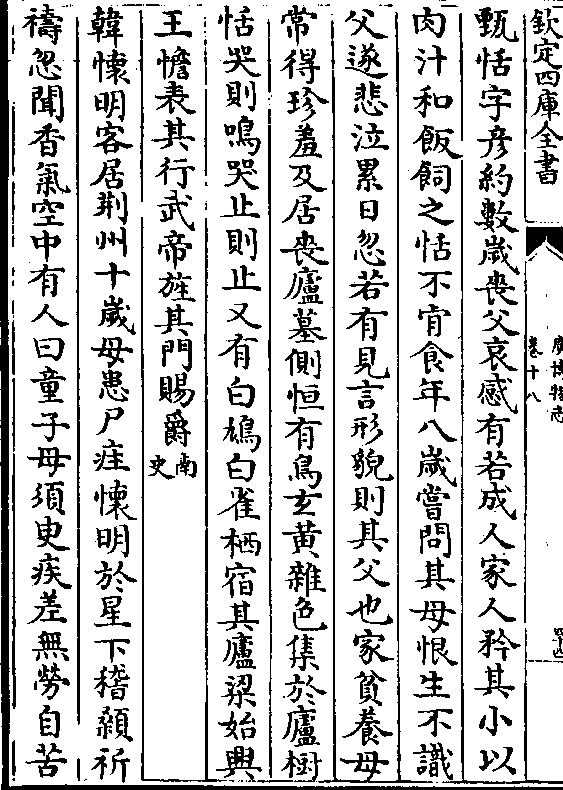 欽定四庫全書
廣博物志
卷十八
甄恬字彦約數歲喪父哀感有若成人家人矜其小以
肉汁和飯飼之恬不肯食年八歲嘗問其母恨生不識
父遂悲泣累日忽若有見言形貌則其父也家貧養母
常得珍羞及居喪廬墓側恒有鳥玄黄雜色集於廬樹
恬哭則鳴哭止則止又有白鳩白雀栖宿其廬梁始興
王憺表其行武帝旌其門賜爵南史
韓懷明客居荆州十歲母患尸疰懷明於星下稽顙祈
禱忽聞香氣空中有人曰童子母須臾疾差無勞自苦